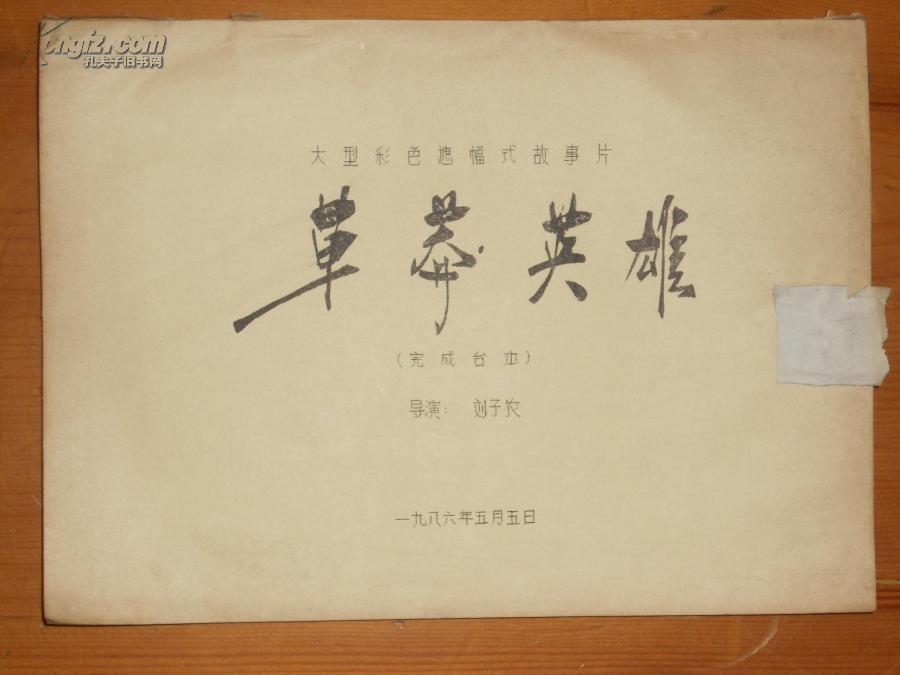 Kongfz.com
孔夫子旧书网
大型彩色遮幅式故事片
草莽英雄
(完成台本)
导演：刘子农
一九八六年五月五日